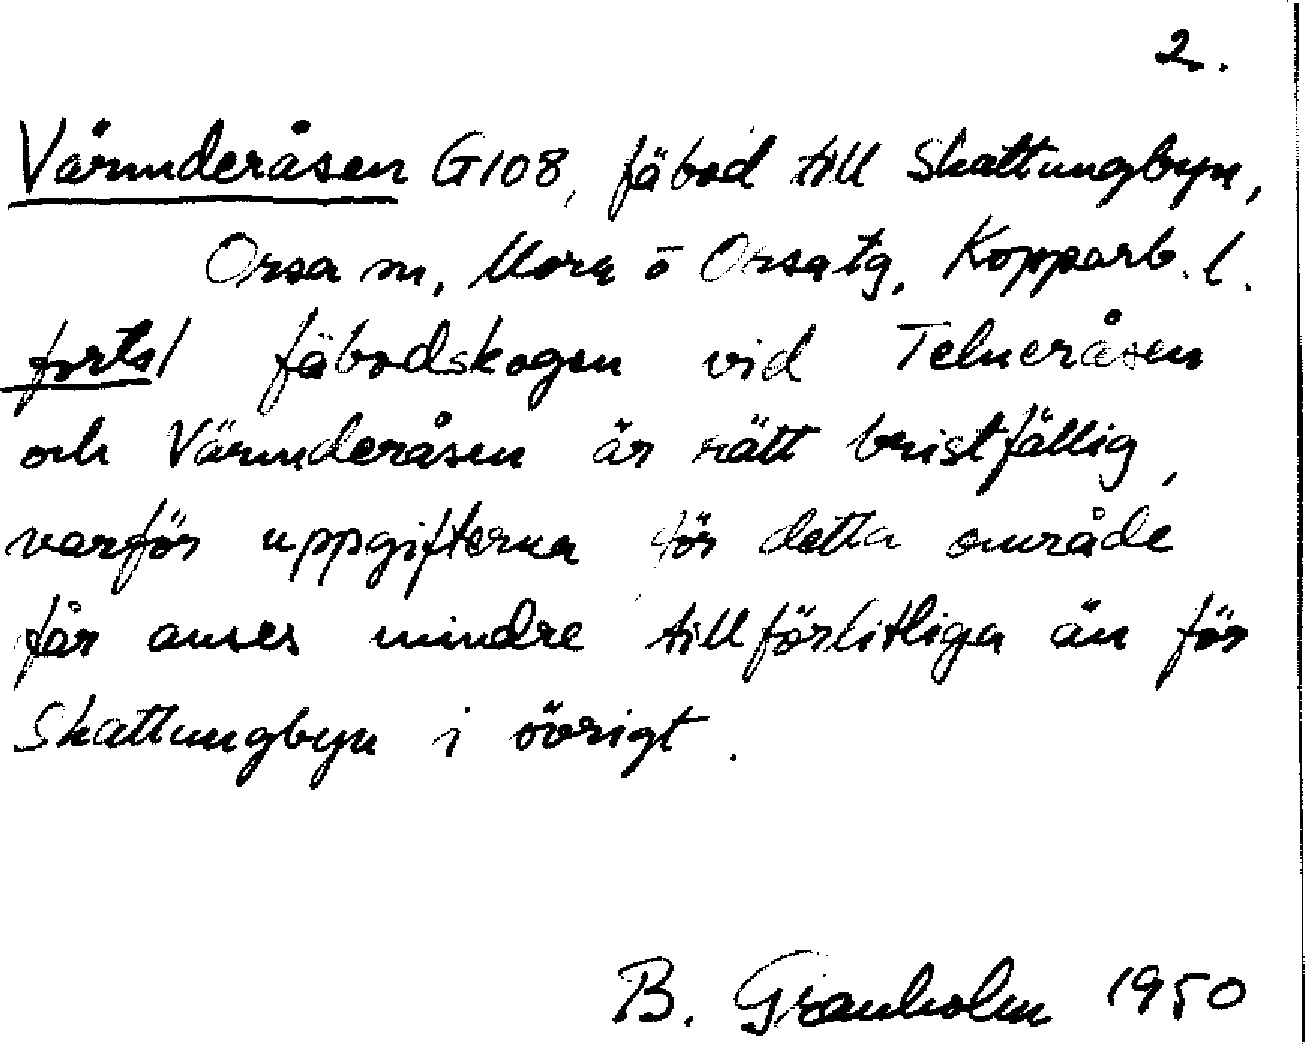 2.
Värmderåsen G108, fäbod till Skattungbyn,
Orsa sn, Mora o Orsa tg, Kopparb. l.
forts/ fäbodskogen vid Telneråsen
och Värmderåsen är rätt bristfällig,
varför uppgifterna för detta område
får anses mindre tillförlitliga än för
Skattungbyn i övrigt.
B. Granholm 1950